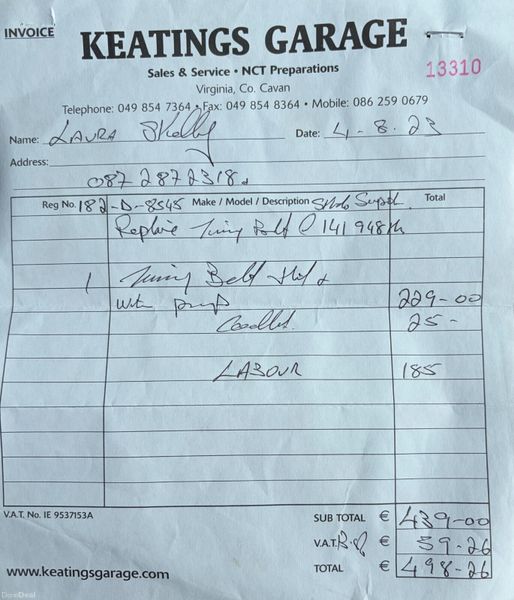 INVOICE
KEATINGS GARAGE
13310
Sales & Service • NCT Preparations
Virginia, Co. Cavan
Telephone: 049 854 7364 • Fax: 049 854 8364 • Mobile: 086 259 0679
Name: LAURA Skelly Date: 4-8.23
Address:
087 2872318
Reg No. 182-D-8545 Make / Model / Description Skoda Superb Total
Replace Timing Belt @ 141 948
1 Timing Belt Kit &
Wtr pump 229-00
Coolant 25-
LABOUR 185
V.A.T. No. IE 9537153A
SUB TOTAL € 439-00
V.A.T. € 59-26
TOTAL € 498-26
www.keatingsgarage.com
DoneDeal